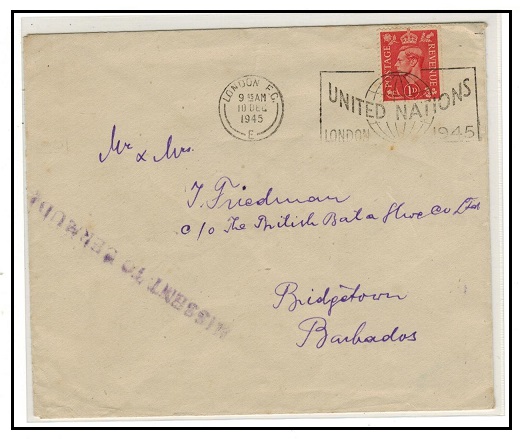 LONDON E.C.
9 15AM
10 DEC
1945
E
POSTAGE REVENUE
1D
UNITED NATIONS
LONDON 1945
Mr & Mrs.
J. Friedman
c/o The British Bata Shoe Co Ltd
Bridgetown
Barbados
MISSENT TO BERMUDA